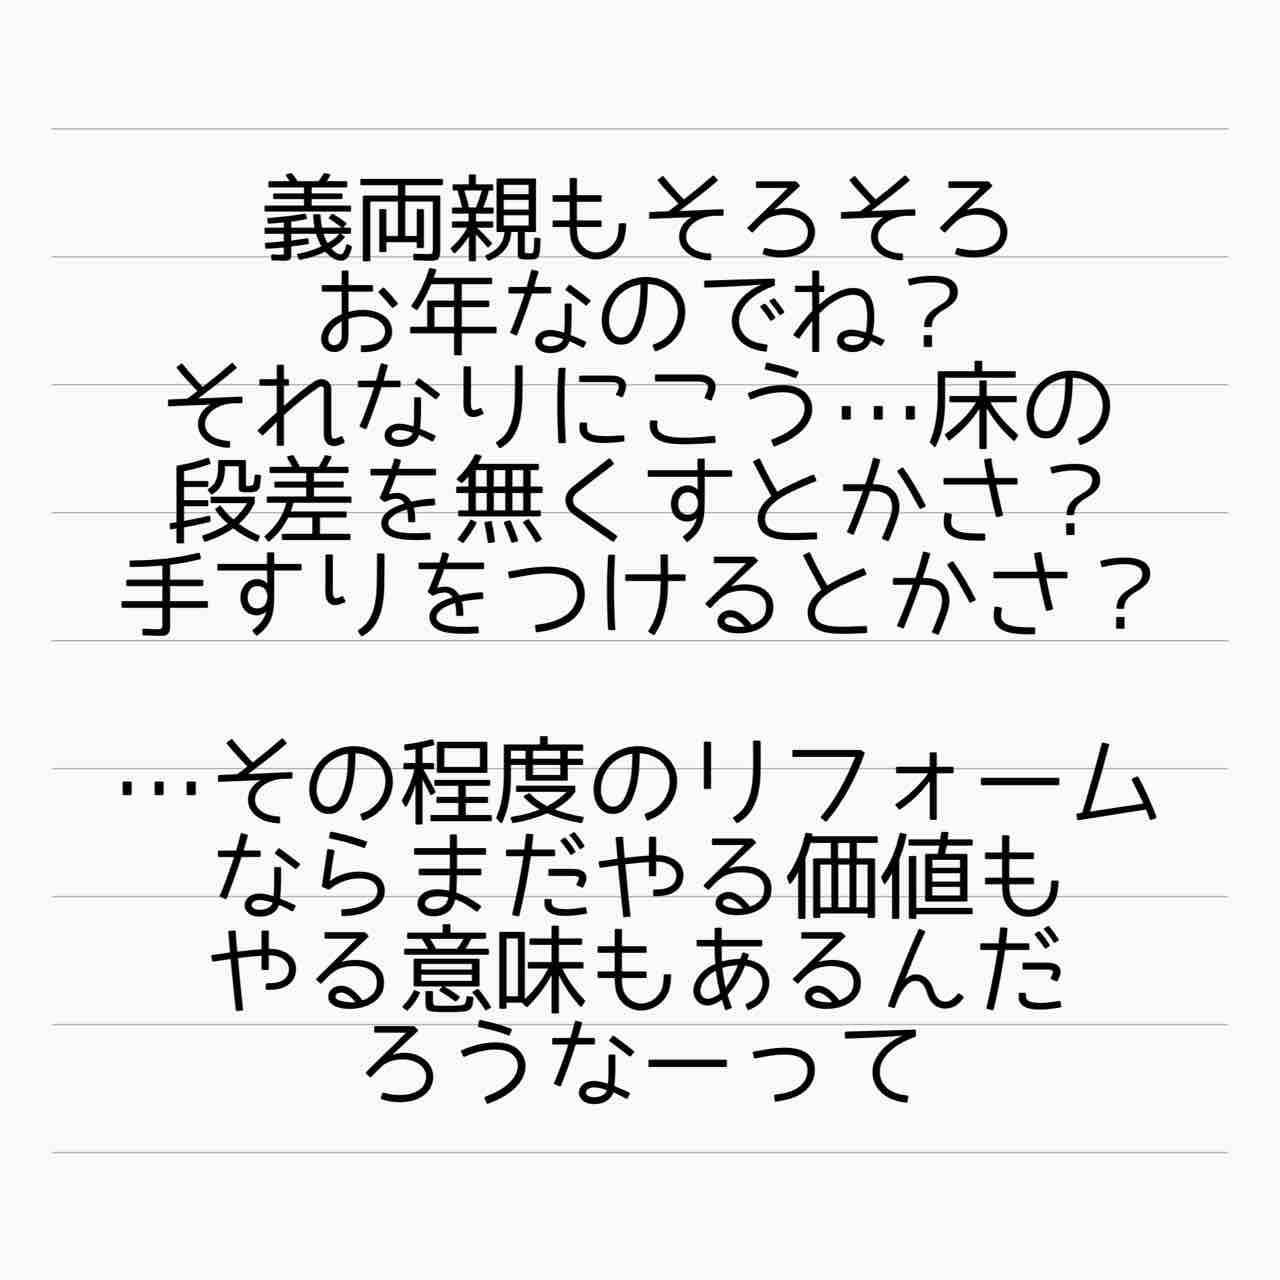 義両親もそろそろ
お年なのでね？
それなりにこう…床の
段差を無くすとかさ？
手すりをつけるとかさ？
…その程度のリフォーム
ならまだやる価値も
やる意味もあるんだ
ろうなーって